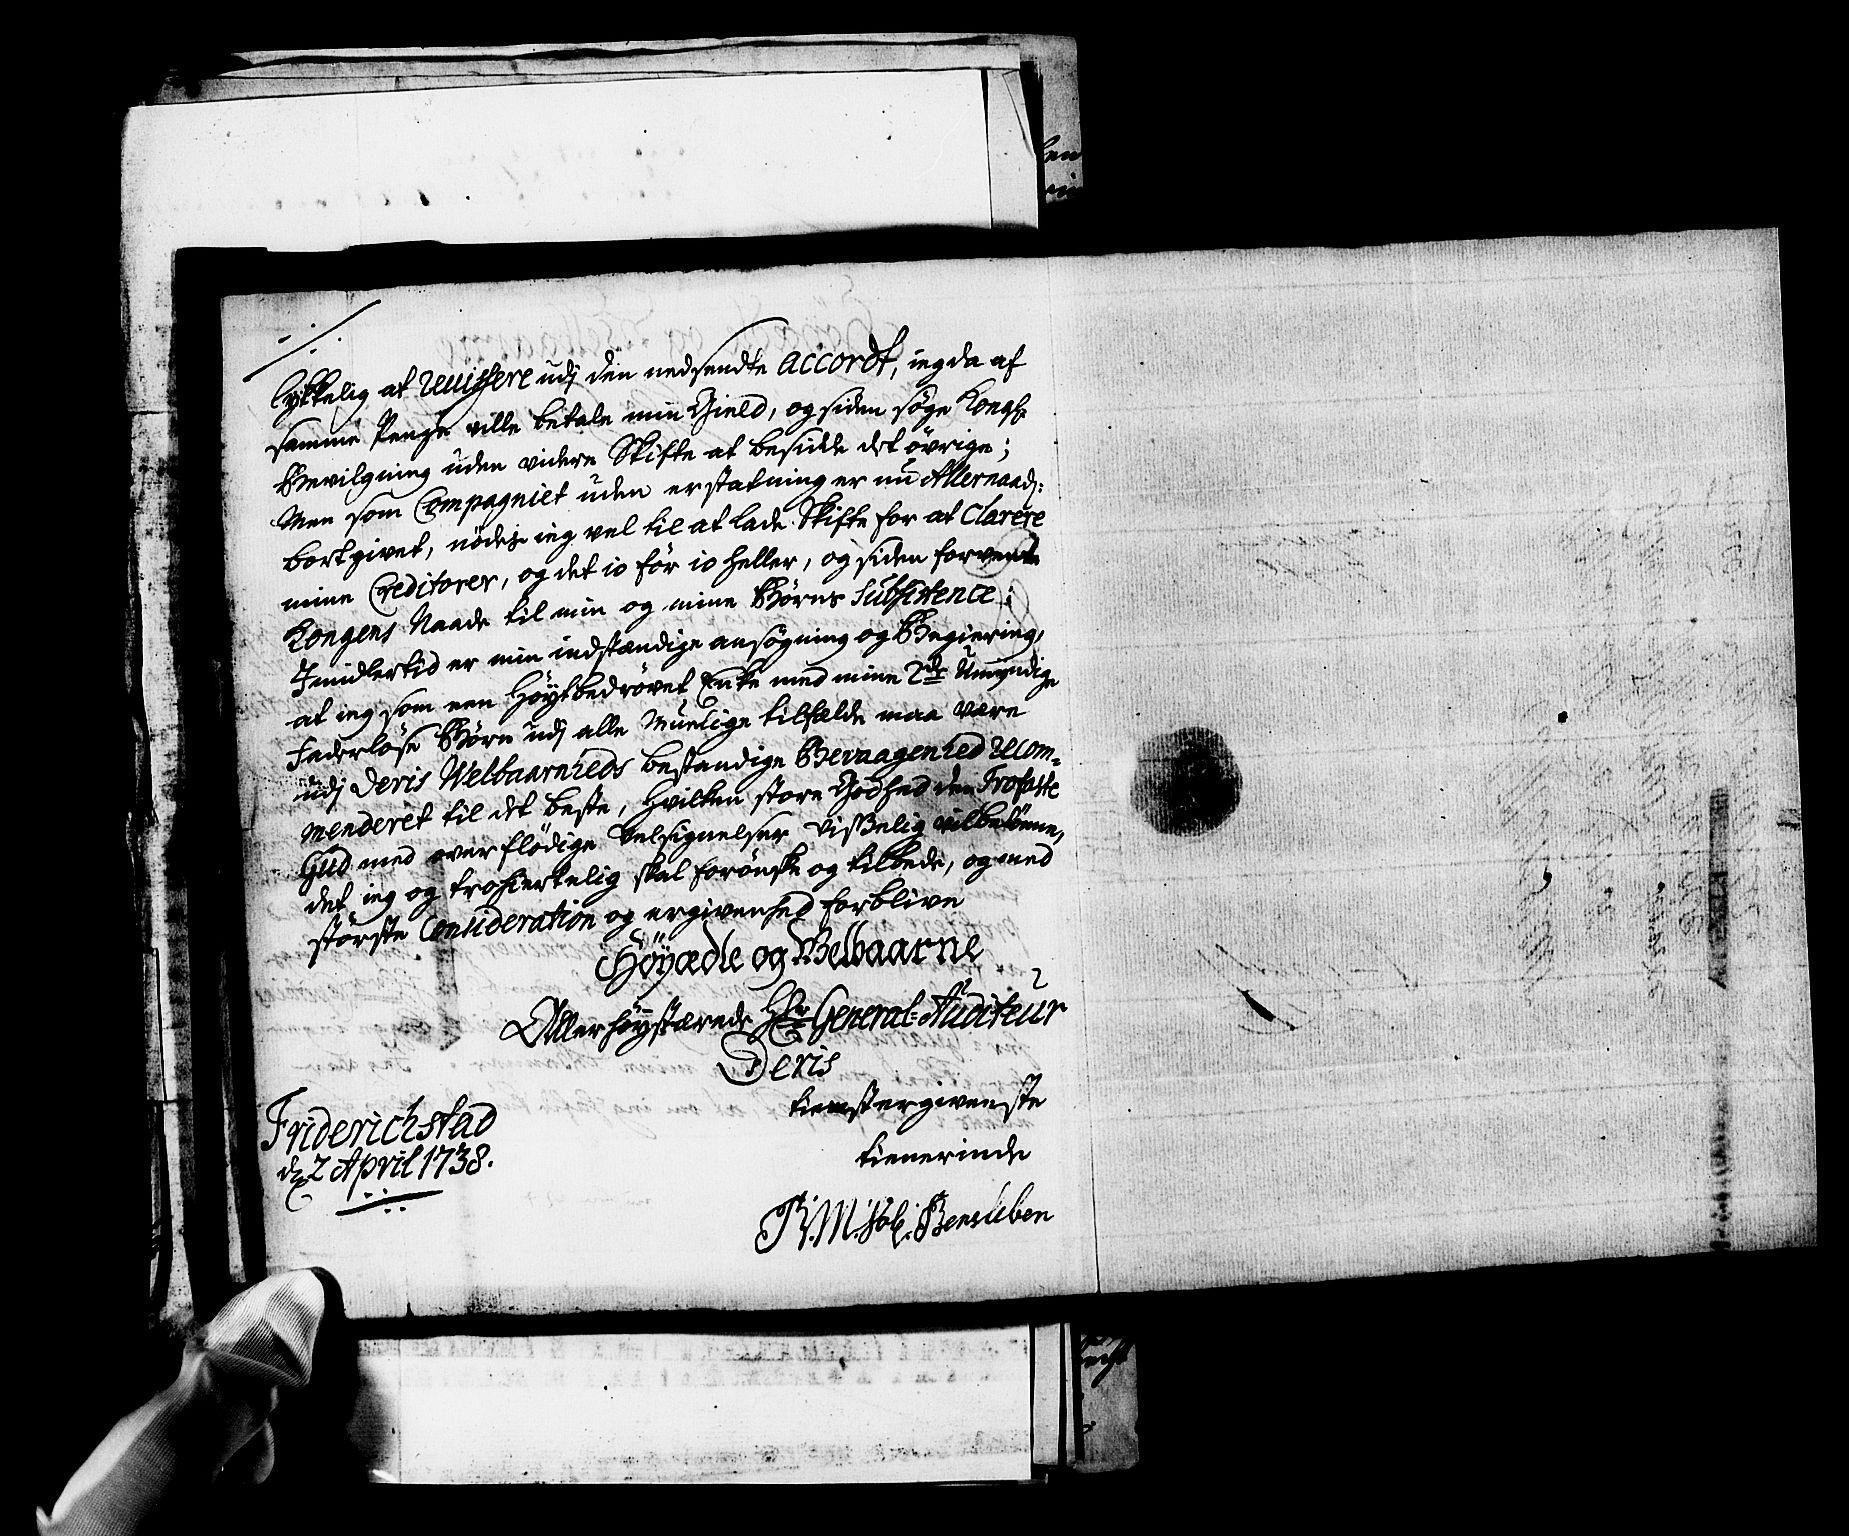 lykkelig at reuissere udj den nedsendte accordt, ieg da af
samme Penge ville betale min Gield, og siden søge Kongl:
Bevilgning uden videre Skifte at besidde det øvrige;
Men som Compagniet uden erstatning er nu Allernaad:
bortgivet, nødes ieg vel til at lade Skifte for at Clarere
mine Creditorer, og det io før io heller, og siden forvente
Kongens Naade til min og mine Børns Subsistence;
Imidlertid er min indstændige ansøgning og Begiering,
at ieg som een Høÿtbedrøvet Enke med mine 2de Umyndige
Faderløse Børn udj alle Muelige tilfælde maa være
udj Deris Welbaarnheds bestandige Bevaagenhed recom-
menderet til det beste, hvilken store Godhed den Trofaste
Gud med overflødige velsignelser visselig vil belønne,
det ieg og trohiertelig skal forønske og tilbede, og med
største Consideration og ergivenhed forblive
Høÿædle og Velbaarne
Allerhøystærede Hr General-Auditeur
Deris
tienstergivenste
tienerinde
Friderichstad
d 2 April 1738.
B. M. Sal. Bensleben